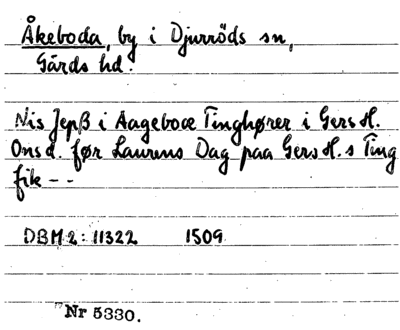 Åkeboda, by i Djurröds sn,
Gärds hd.
Nis Jepß i Aageboce Tinghører i Gers H.
Onsd. før Laurens Dag paa Gers H.s Ting
fik --
DBM 2: 11322 1509
Nr 5330.